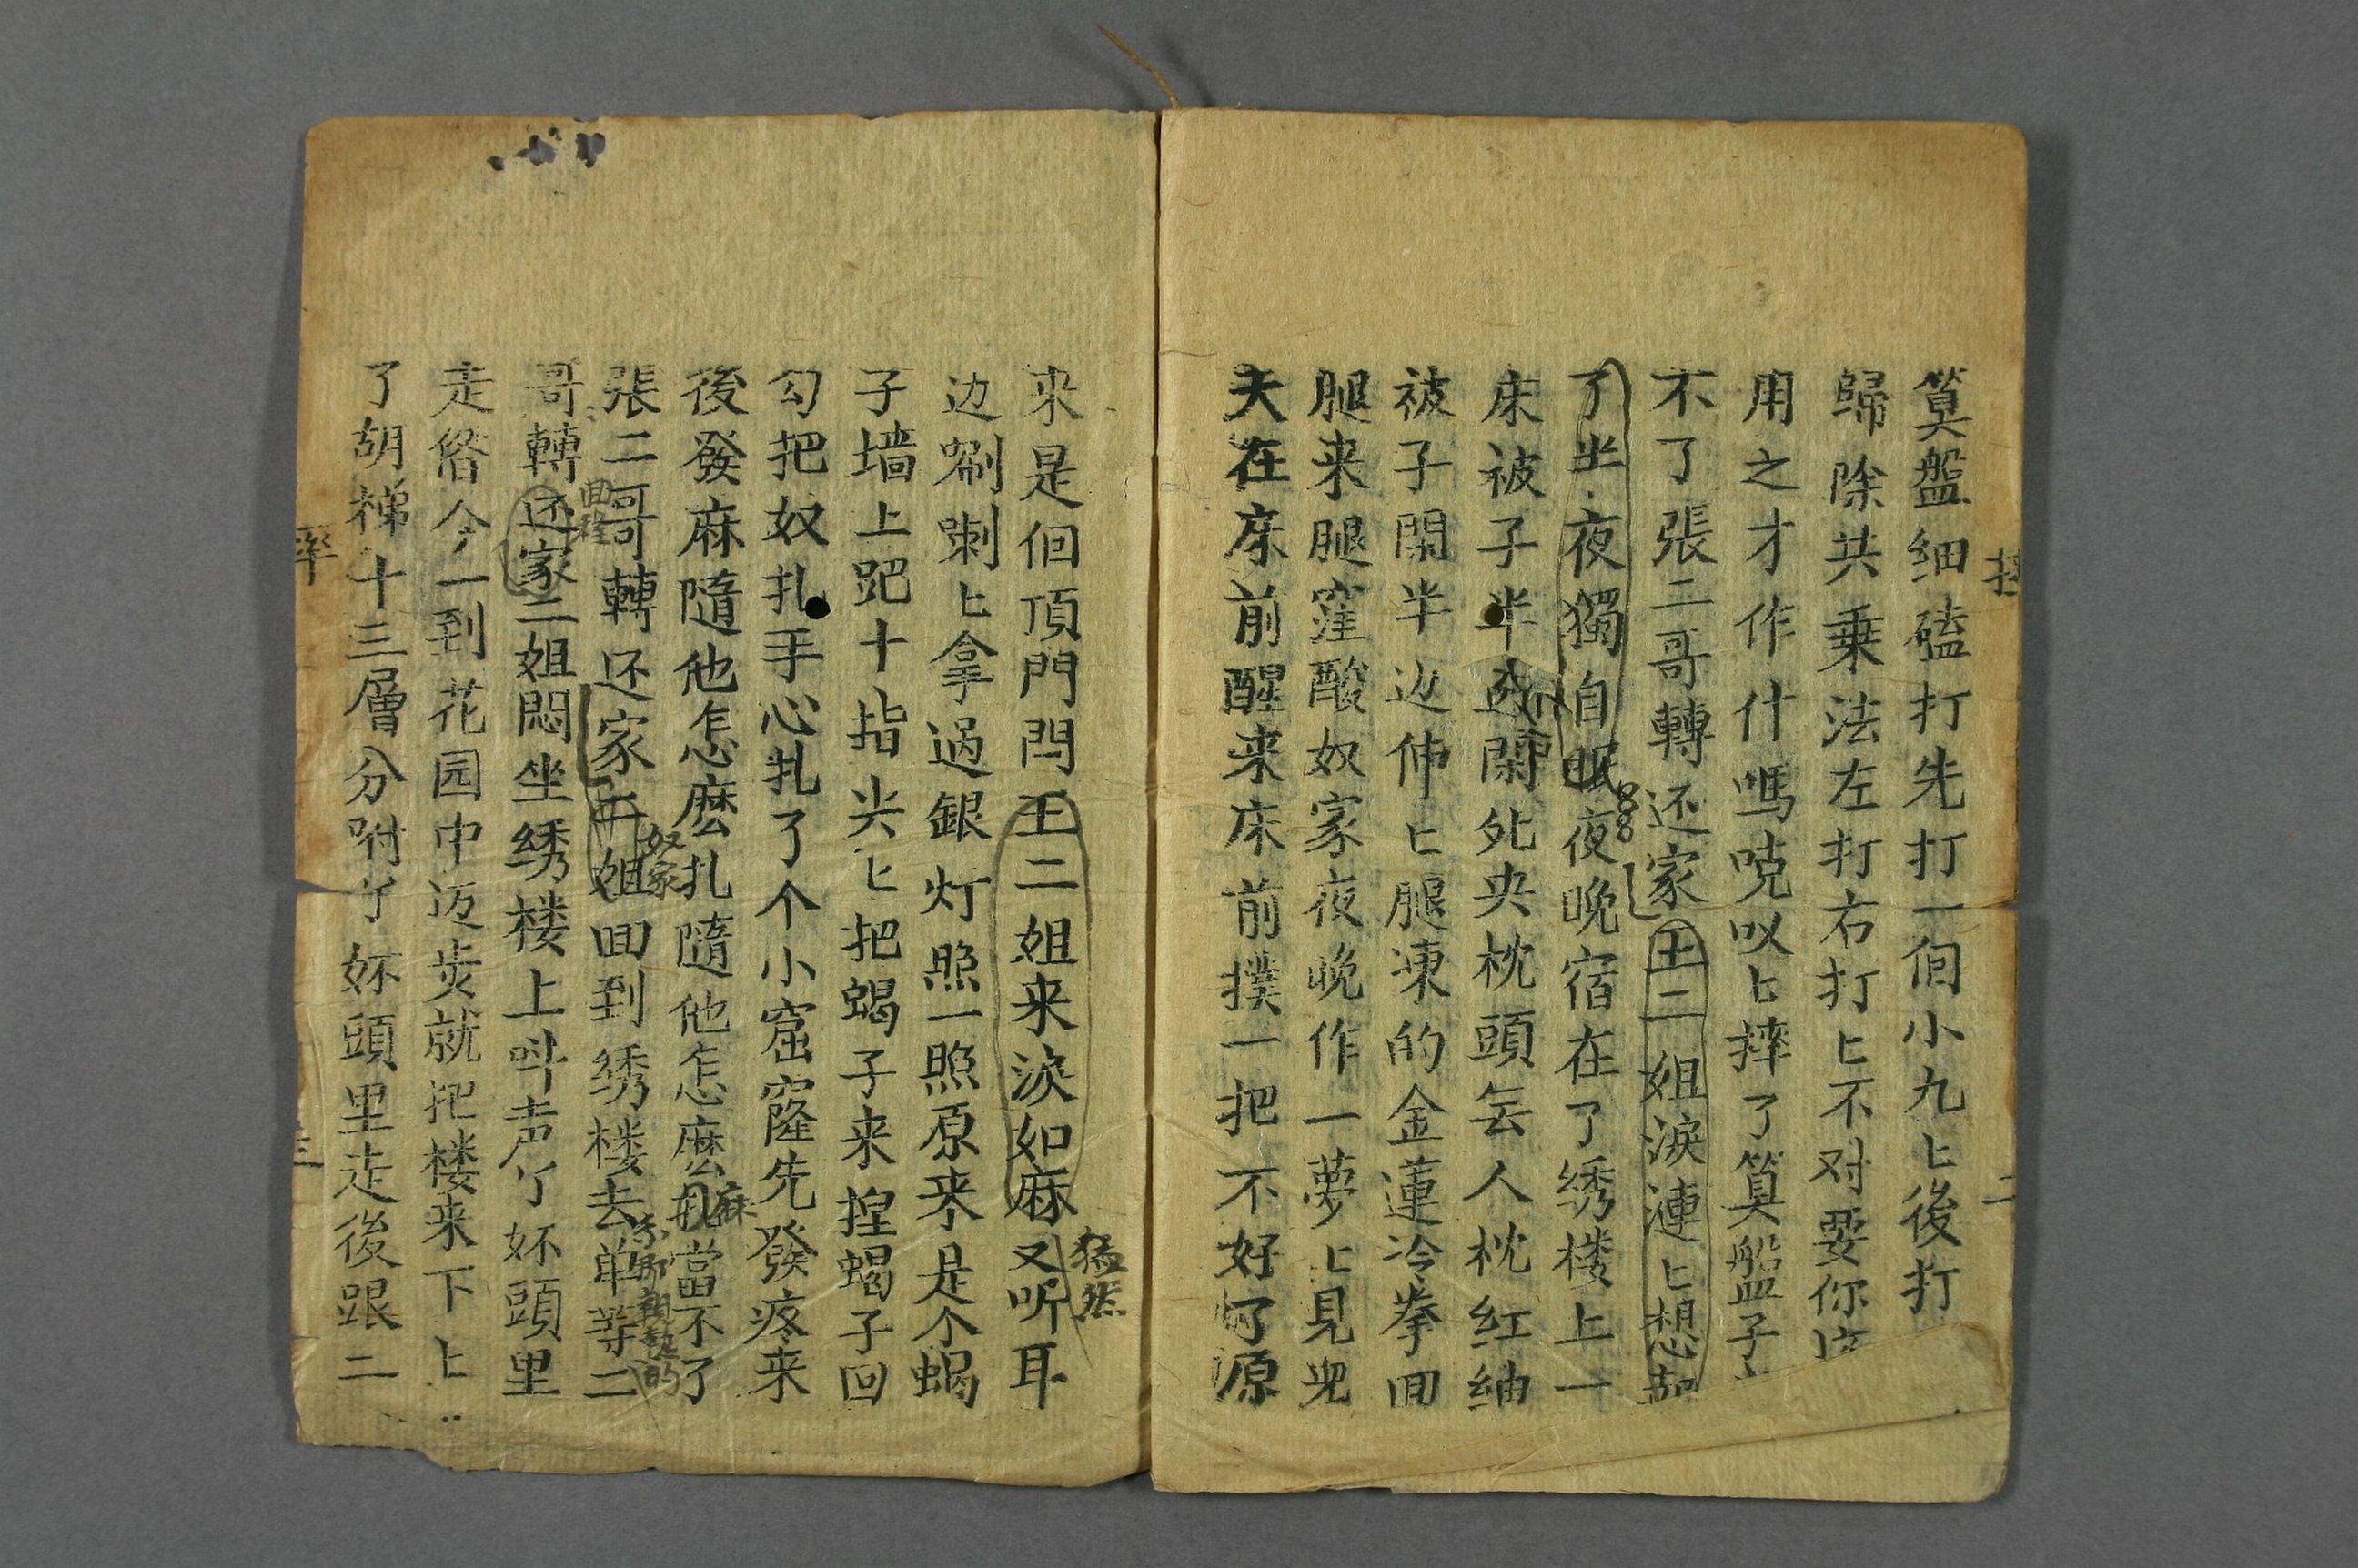 算盤细磕打先打一個小九匕後打
歸除共乗法左打右打匕不对要你
用之才作什嗎唍叹匕摔了算盤子
不了張二哥轉还家王二姐淚漣匕想起
了坐夜獨自眠夜晚宿在了绣楼上一
床被子半边閑死央枕頭無人枕红紬
被子閑半边伸匕腿凍的金蓮冷拳回
腿来腿窪酸奴家夜晚作一夢匕見兇
夫在床前醒来床前撲一把不好了原
来是個頂門閂王二姐来淚如麻又听耳
猛然
边唰喇匕拿過銀灯照一照原来是个蝎
子墙上跁十指尖匕把蝎子来揑蝎子回
勾把奴扎手心扎了个小窟窿先發疼来
後發麻隨他怎麽扎隨他怎麽當不了
麻
張二哥轉还家二姐回到绣楼去单等二
奴家
哥轉还家二姐悶坐绣楼上呌声丫妚頭里
走偺今一到花园中迈步就把楼来下上
了胡梯十三層分咐丫妚頭里走後跟二
二